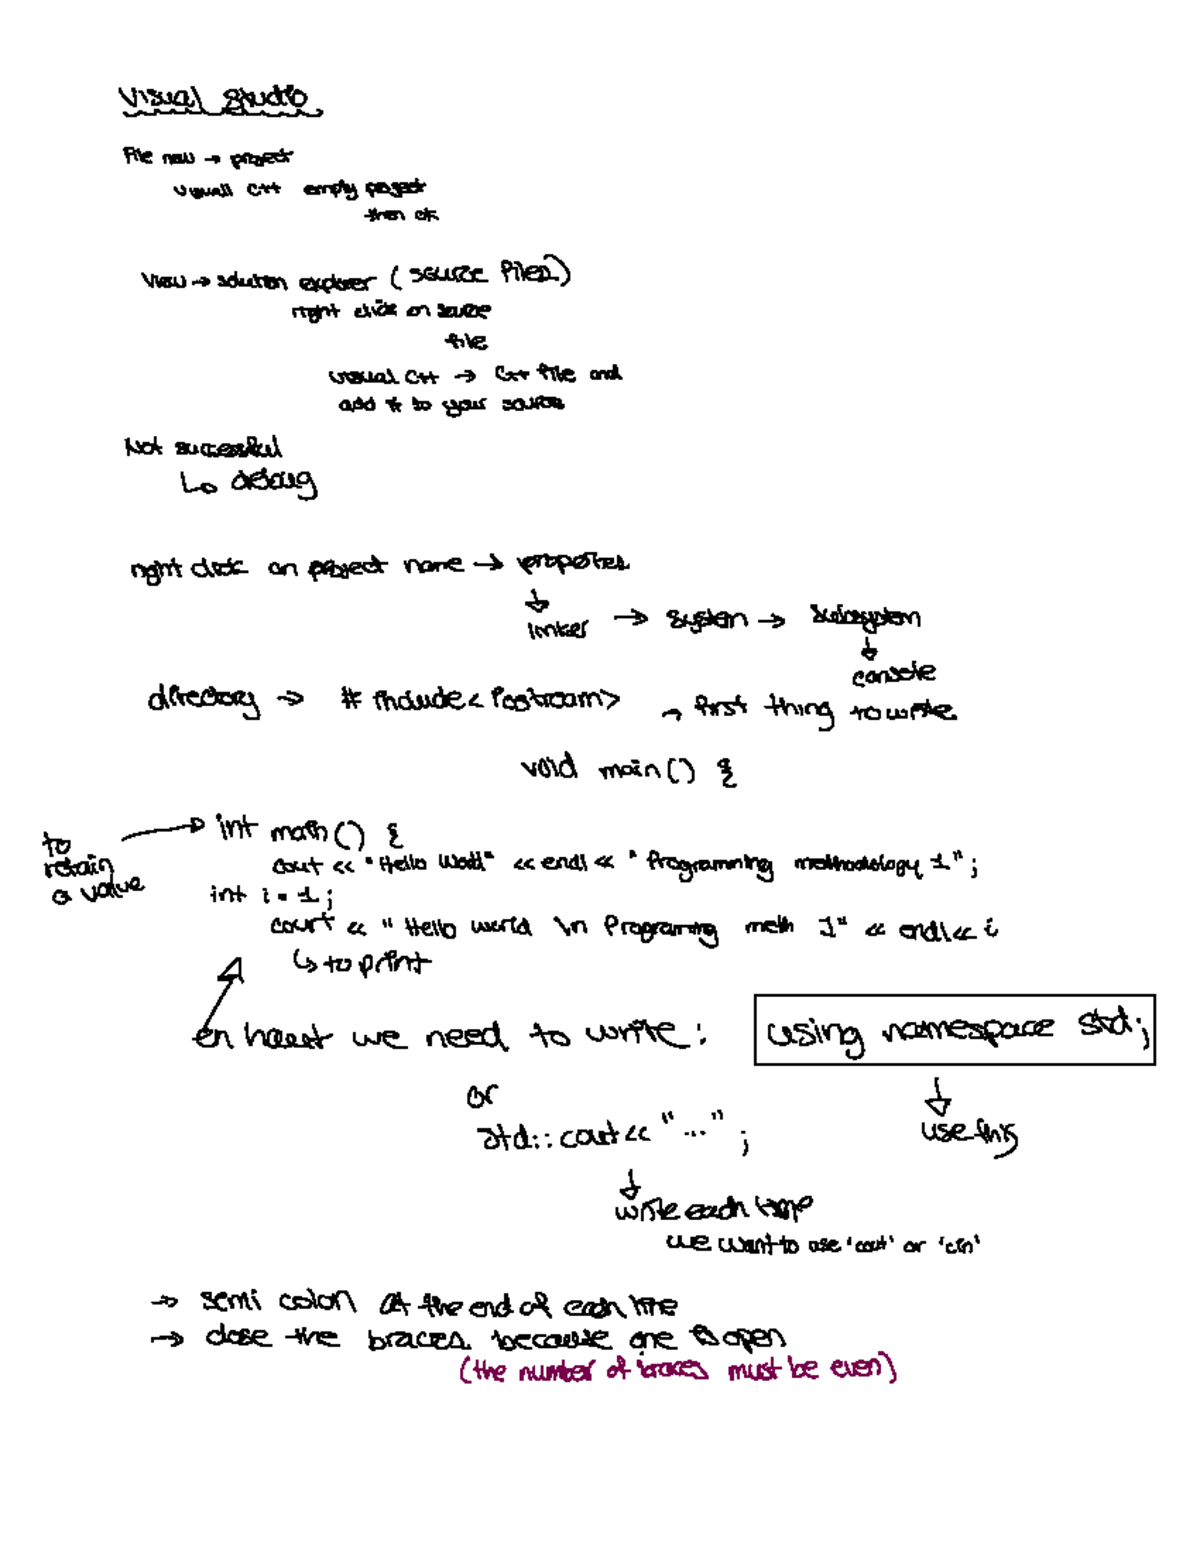 Visual studio
File new → project
visuall C++ empty project
then ok
View → solution explorer (source files)
right click on source
file
visual C++ → C++ file and
add it to your source
Not successful
↳ debug
right click on project name → properties
↓
linker → system → subsystem
↓
console
directory → # include <iostream> → first thing to write
void main() {
to
retain
a value
→ int main() {
cout << "Hello World" << endl << "Programming methodology 1";
int i = 1;
cout << "Hello world \n Programing meth 1" << endl << i
↳ to print
en haut we need to write: using namespace std;
or
std::cout << "..." ;
↓
use this
↓
write each time
we want to use 'cout' or 'cin'
→ semi colon at the end of each line
→ close the braces because one is open
(the number of braces must be even)